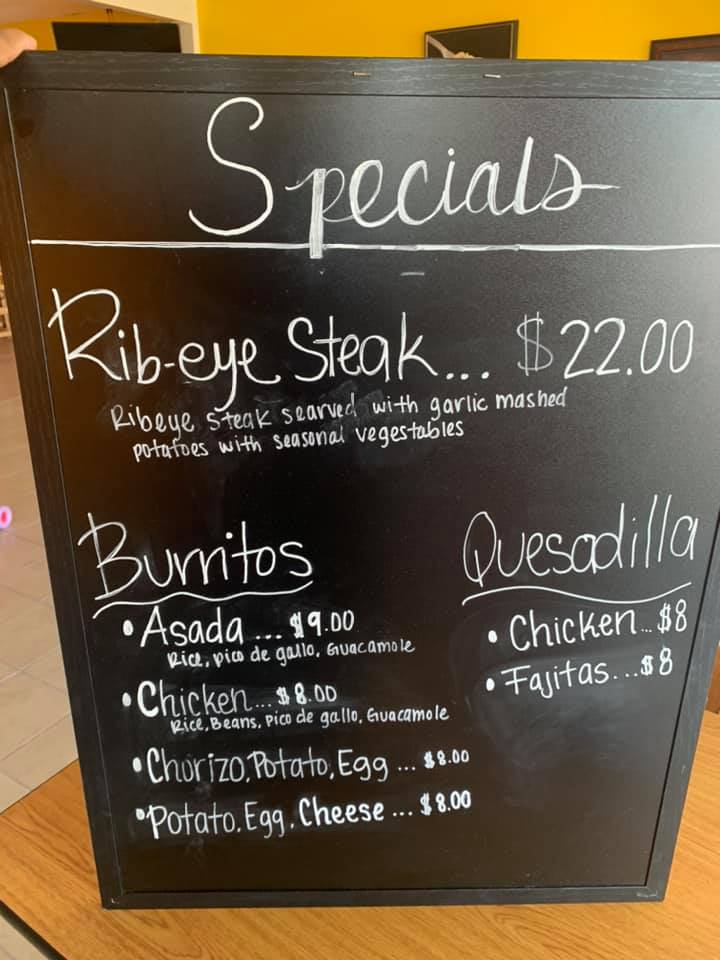 Specials
Rib-eye Steak... $22.00
Ribeye steak searved with garlic mashed
potatoes with seasonal vegestables
Burritos
• Asada ... $9.00
Rice, pico de gallo, Guacamole
• Chicken... $8.00
Rice, Beans, Pico de gallo, Guacamole
• Chorizo, Potato, Egg ... $8.00
• Potato, Egg, Cheese ... $8.00
Quesadilla
• Chicken... $8
• Fajitas... $8